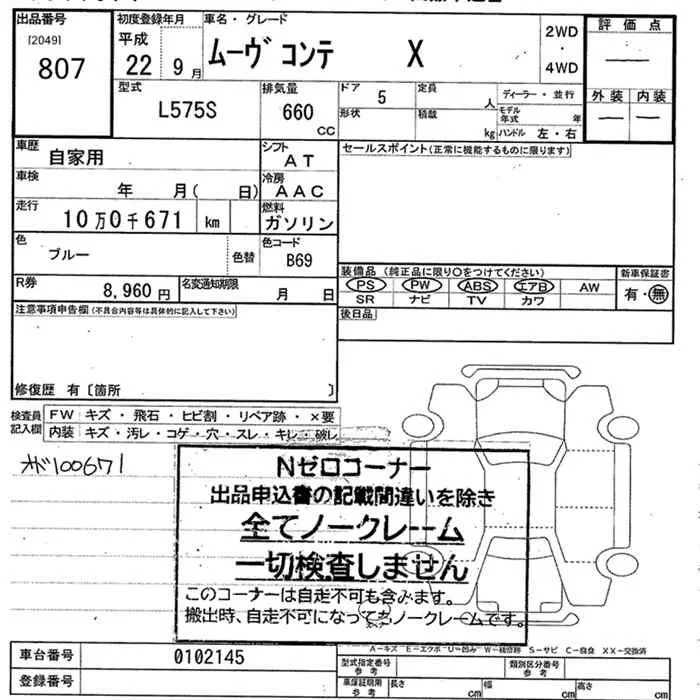 出品番号
[2049]
807
初度登録年月
平成
22 9月
車名・グレード
ムーヴコンテ X
2WD
・
4WD
評価点
—
外装 内装
— —
型式
L575S
排気量
660
CC
ドア 5
形状
定員
人
積載
kg
ディーラー・並行
モデル年式 年
ハンドル 左・右
車歴
自家用
シフト
AT
車検
年 月( 日)
冷房
AAC
走行
10万0千671 km
燃料
ガソリン
色
ブルー
色替
色コード
B69
R券
8,960円
名変通知期限
月 日
セールスポイント(正常に機能するものに限ります)
装備品 (純正品に限り○をつけてください)
新車保証書
PS PW ABS エアB AW
有・無
SR ナビ TV カワ
後日品
注意事項申告欄(不具合内容等は具体的に記入して下さい)
修復歴 有〔箇所 〕
検査員記入欄
FW キズ・飛石・ヒビ割・リペア跡・×要
内装 キズ・汚レ・コゲ・穴・スレ・キレ・破レ
オド100671
Nゼロコーナー
出品申込書の記載間違いを除き
全てノークレーム
一切検査しません
このコーナーは自走不可も含みます。
搬出時、自走不可になってもノークレームです。
A-キズ E-エクボ U-凹み W-補修跡 S-サビ C-腐食 XX-交換済
車台番号 0102145
登録番号
型式指定番号
参考
類別区分番号
参考
車庫証明用
参考
長さ cm
幅 cm
高さ cm